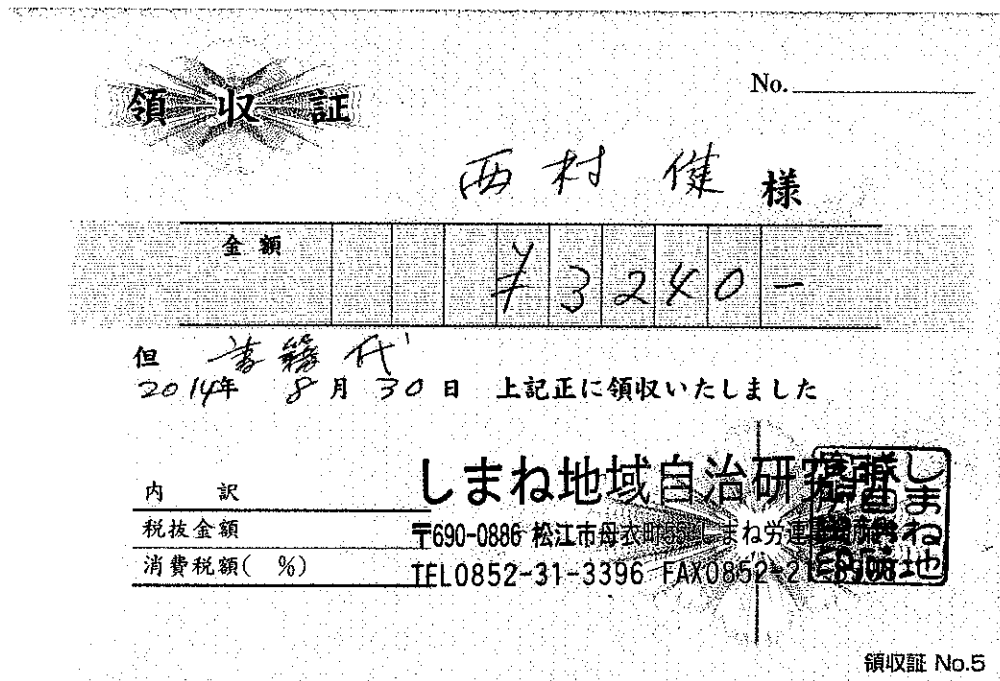 領収証
No.
西村 健 様
金額 ¥3240-
但 書籍代
2014年 8月30日 上記正に領収いたしました
内 訳
税抜金額
消費税額( %)
しまね地域自治研
〒690-0886 松江市母衣町55 しまね労連
TEL0852-31-3396 FAX0852-21-
しまね地
領収証 No.5